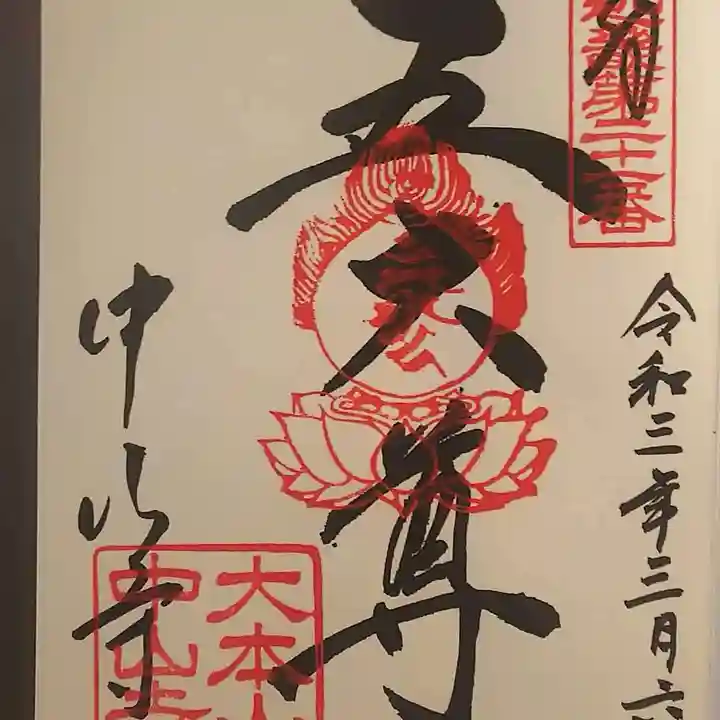 霊場第二十一番
令和三年三月六
五大尊
中山寺
大本山
中山寺